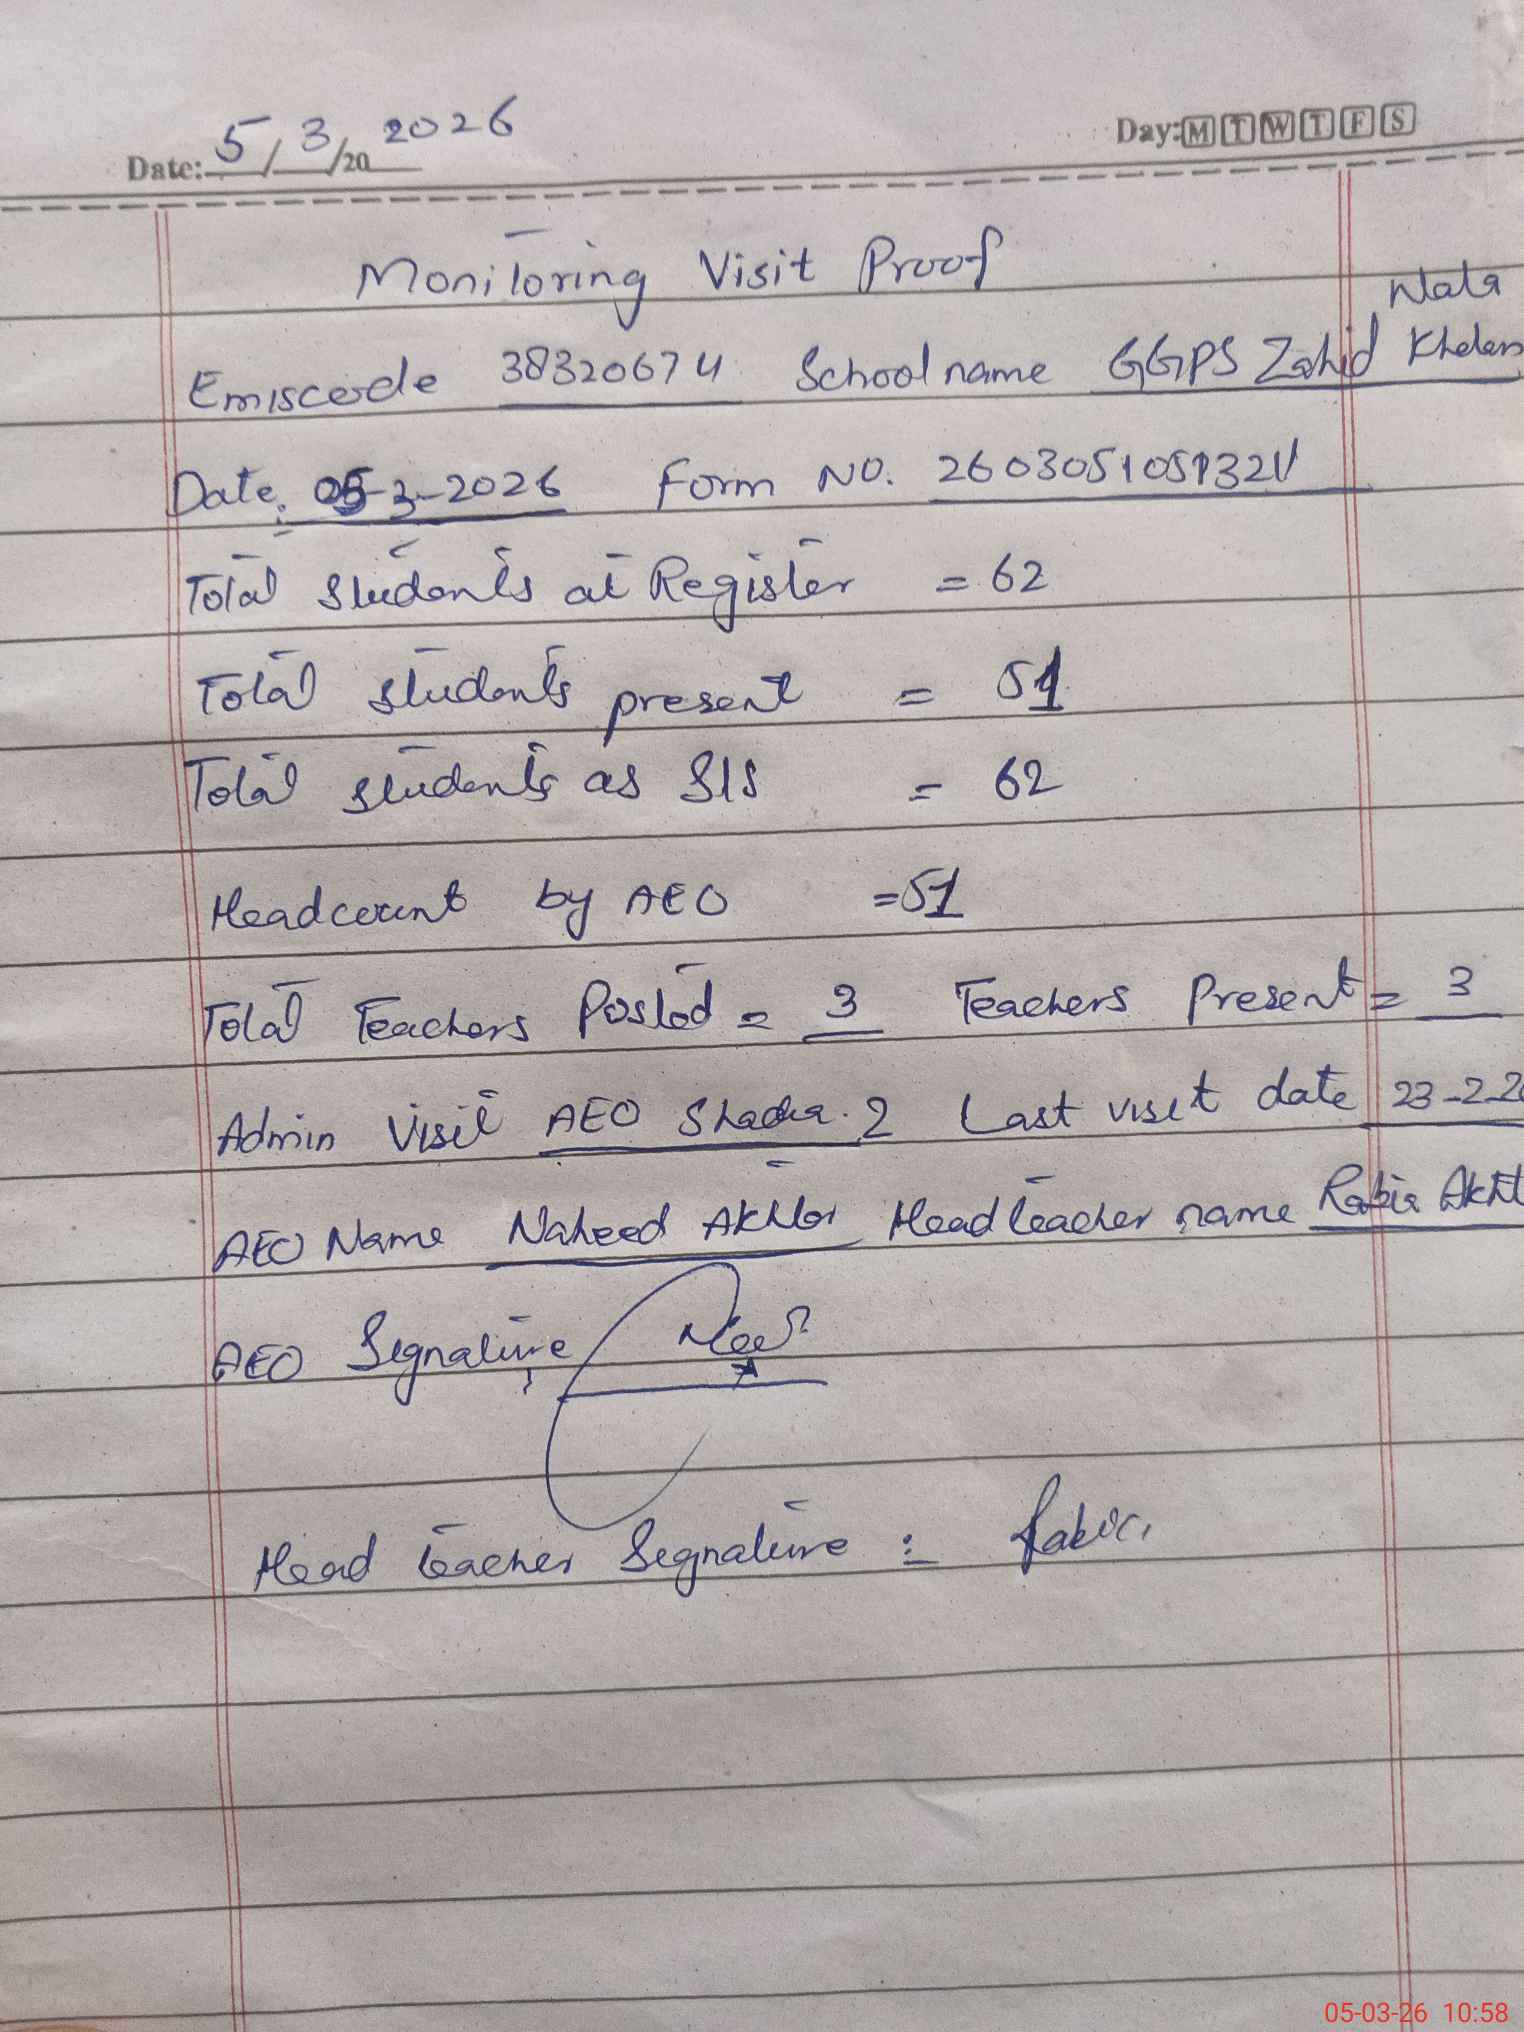 Date: 5/3/20 2026 Day: M T W T F S
Monitoring Visit Proof
Emiscode 38320674 School name GGPS Zahid Khelan
Date: 05-3-2026 Form NO.
Total students at Register = 62
Total students present = 51
Total students as SIS = 62
Headcount by AEO = 51
Total Teachers Posted = 3 Teachers Present = 3
Admin Visit AEO 2 Last visit date 23-2-2
AEO Name Naheed Akhtar Headteacher name Rabia Akht
AEO Signature
Head teacher Signature : Rabia
05-03-26 10:58